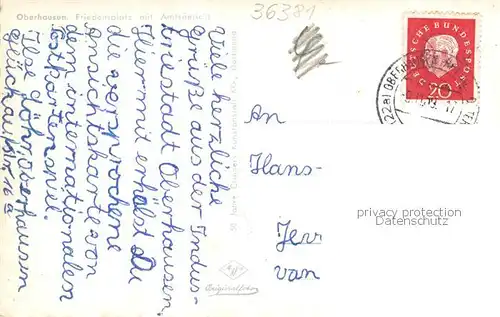 Oberhausen. Friedensplatz mit Amtsgericht
36381
Viele herzliche
Grüße aus der Indus-
triestadt Oberhausen.
Hiermit erhälst Du
die versprochene
Ansichtskarte von
dem internationalen
Postkartenspiel.
Ilse Döhr, Oberhausen
An
Hans-
Jerr
van
DEUTSCHE BUNDESPOST
20
(22a) OBERHAUSEN
privacy protection
Datenschutz
Originalfoto